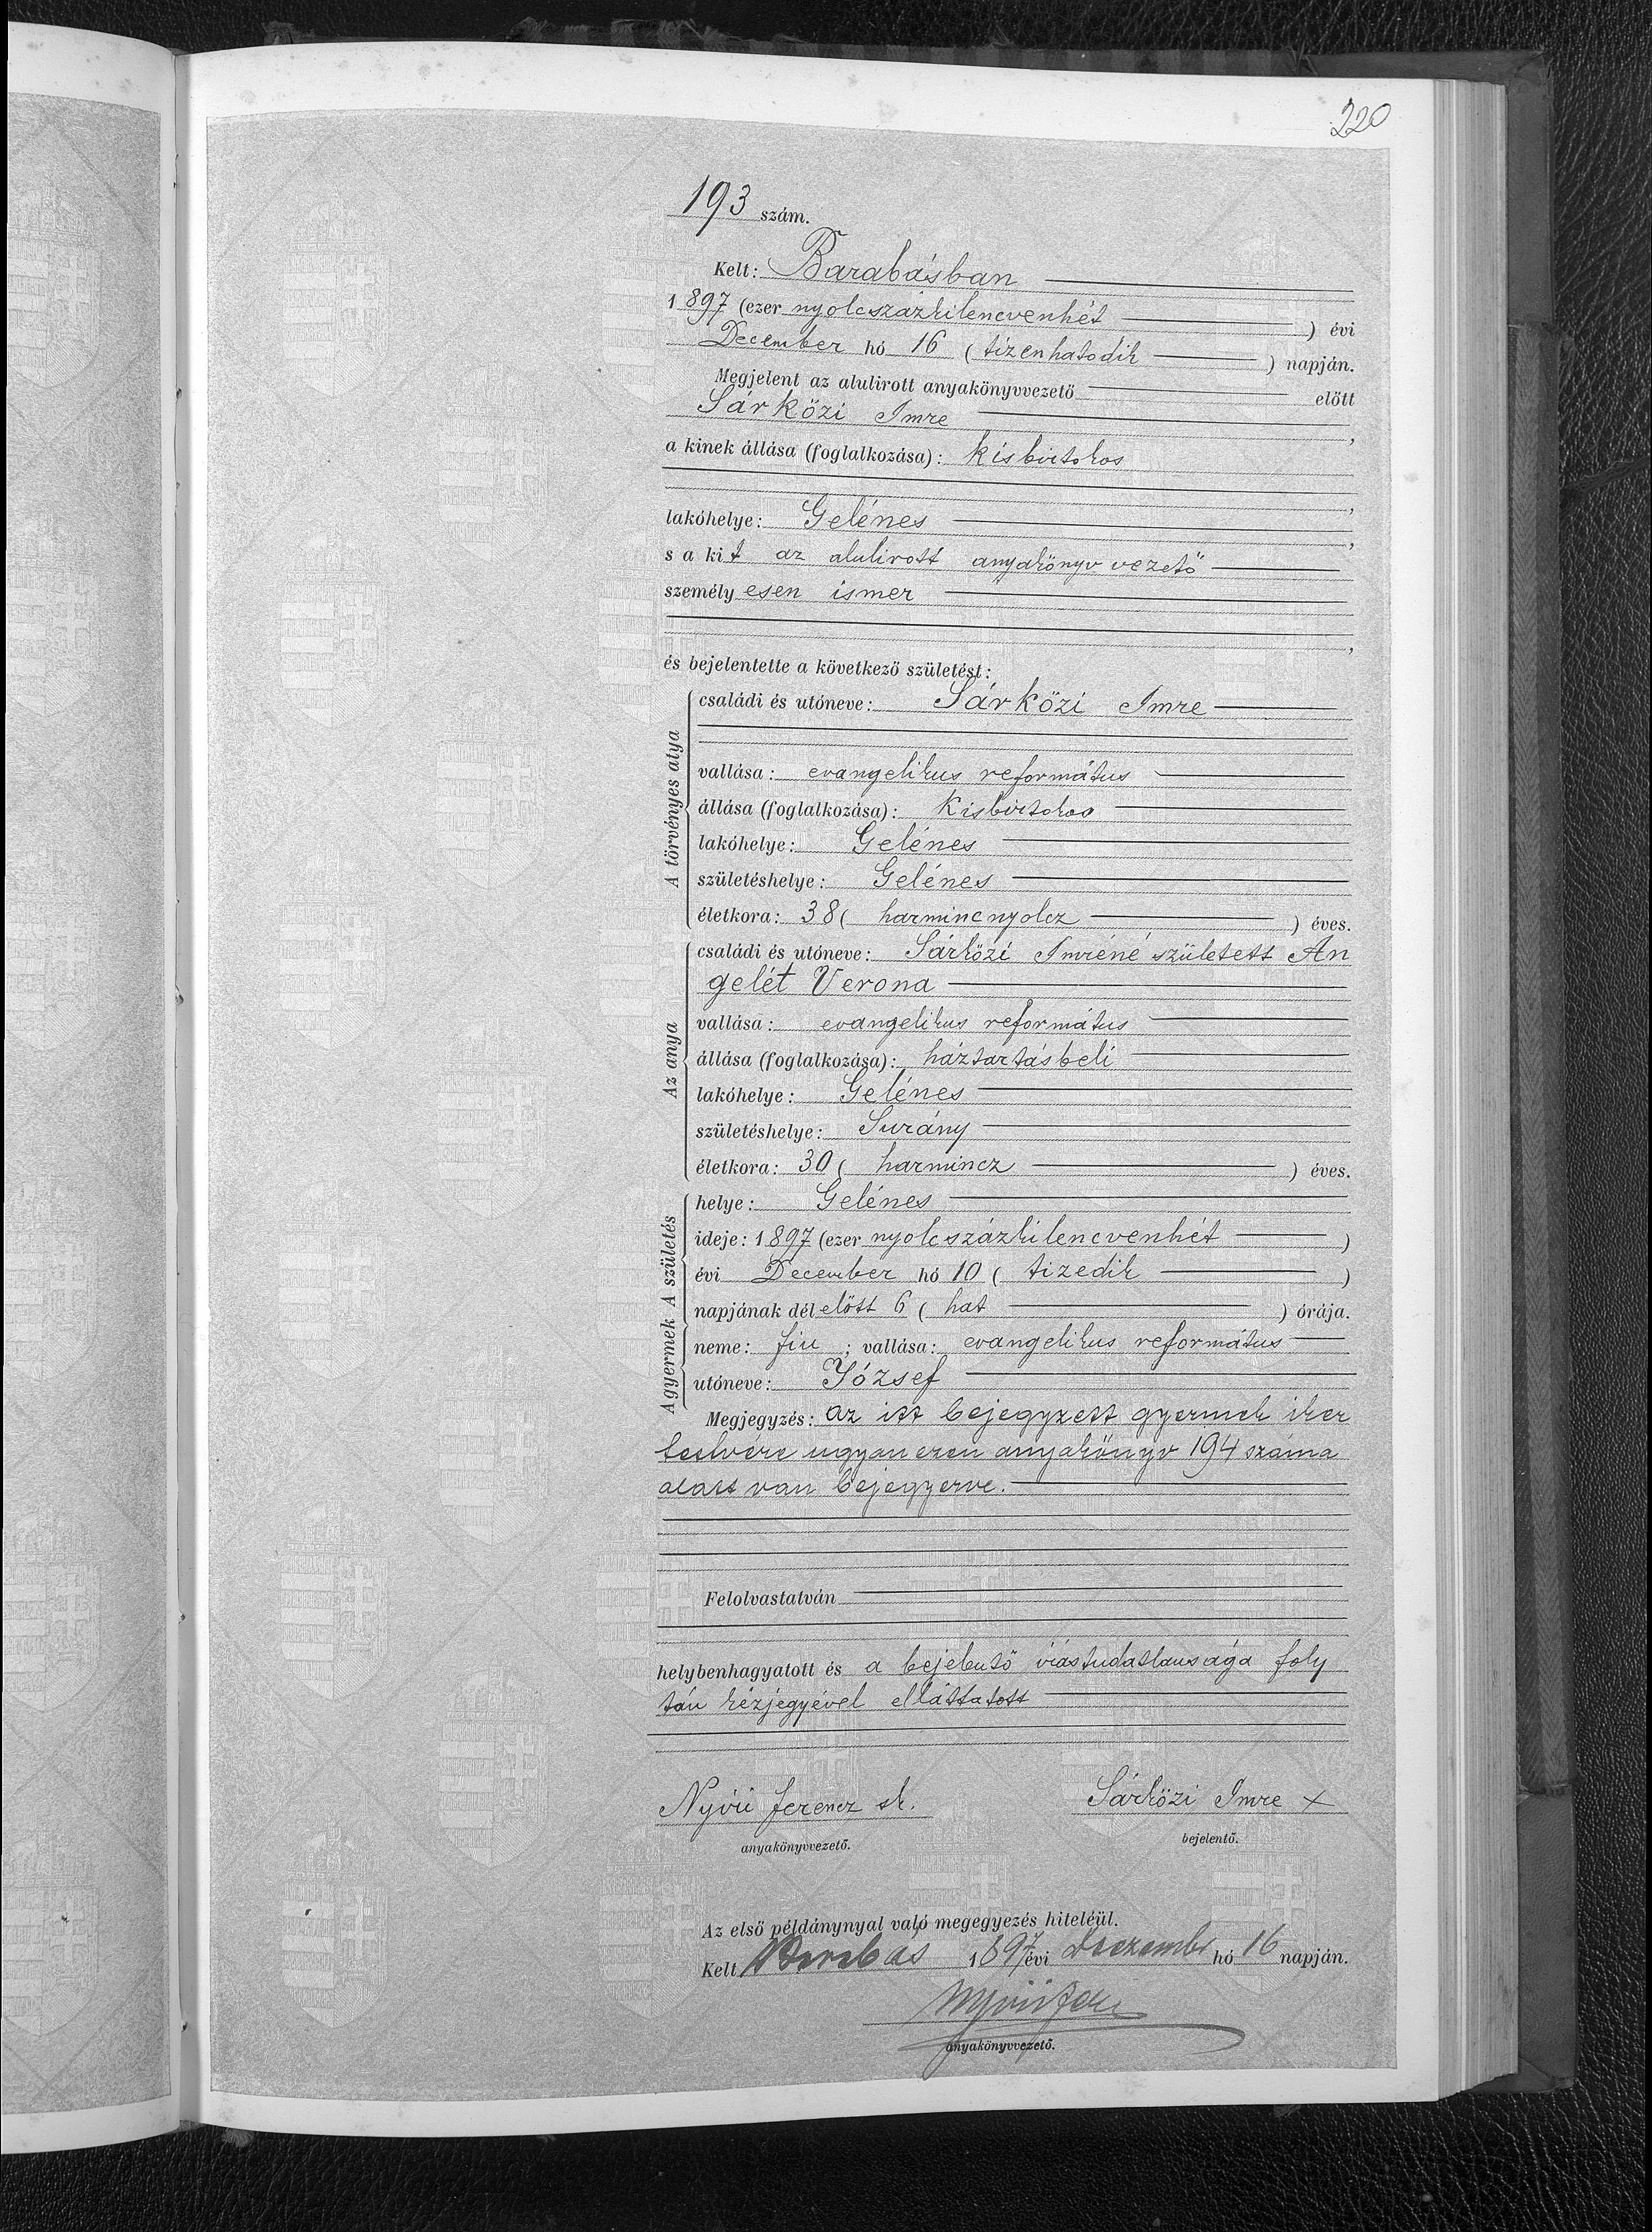 220
193 szám.
Kelt: Barabásban
1897 (ezer nyolcszázkilencvenhét ) évi
December hó 16 ( tizenhatodik ) napján.
Megjelent az alulirott anyakönyvvezető előtt
Sárközi Imre ,
a kinek állása (foglalkozása): kisbirtokos
,
lakóhelye: Gelénes ,
s a kit az alulirott anyakönyvvezető
személyesen ismer
,
és bejelentette a következő születést:
A törvényes atya
családi és utóneve: Sárközi Imre
vallása: evangelikus református
állása (foglalkozása): Kisbirtokos
lakóhelye: Gelénes
születéshelye: Gelénes
életkora: 38 ( harmincnyolcz ) éves.
Az anya
családi és utóneve: Sárközi Imréné született An
gelét Verona
vallása: evangelikus református
állása (foglalkozása): háztartásbeli
lakóhelye: Gelénes
születéshelye: Surány
életkora: 30 ( harmincz ) éves.
A gyermek A születés
helye: Gelénes
ideje: 1897 (ezer nyolcszázkilencvenhét )
évi December hó 10 ( tizedik )
napjának délelőtt 6 ( hat ) órája.
neme: fiu ; vallása: evangelikus református
utóneve: József
Megjegyzés: az itt bejegyzett gyermek iker
testvére ugyanezen anyakönyv 194 száma
alatt van bejegyezve.
Felolvastatván
helybenhagyatott és a bejelentő irástudatlansága foly
tán kézjegyével elláttatott
Nyirü Ferencz sk. Sárközi Imre x
anyakönyvvezető. bejelentő.
Az első példánynyal való megegyezés hiteléül.
Kelt Barabás 1897 évi Deczember hó 16 napján.
anyakönyvvezető.